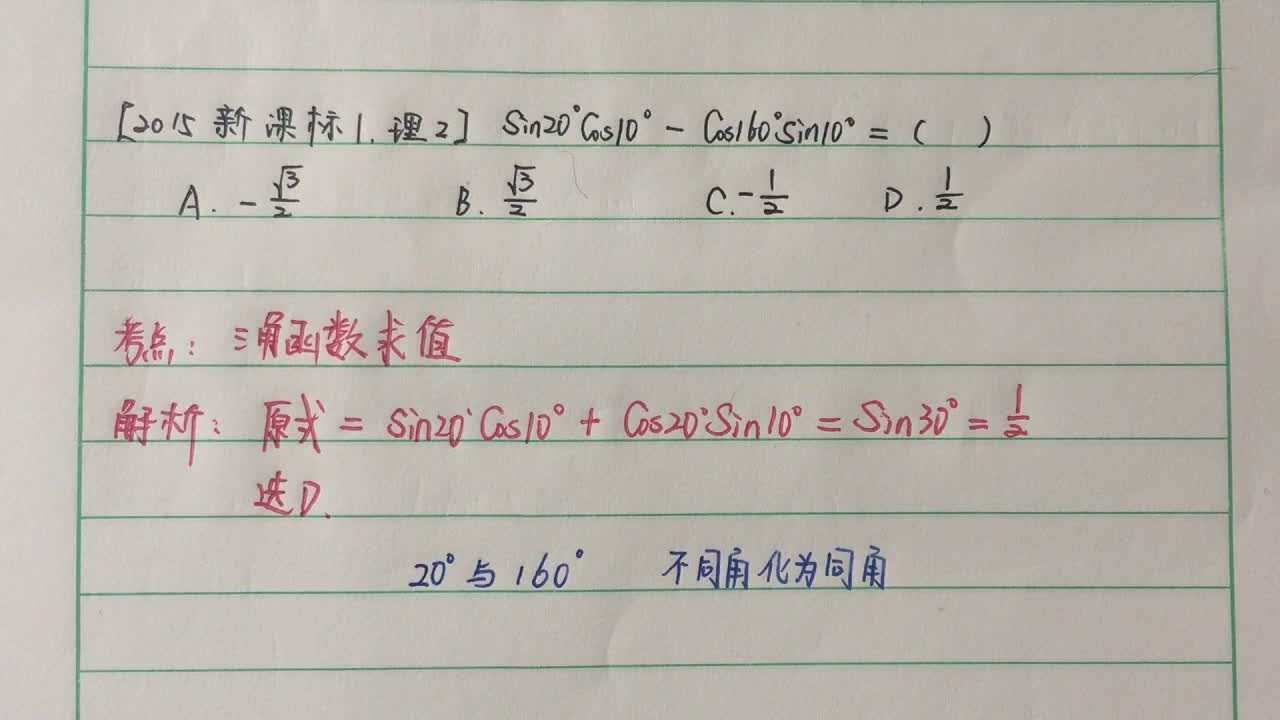 [2015新课标1.理2] Sin20°Cos10° - Cos160°Sin10° = ( )
A. -√3/2 B. √3/2 C. -1/2 D. 1/2
考点: 三角函数求值
解析: 原式 = Sin20°Cos10° + Cos20°Sin10° = Sin30° = 1/2
选D.
20°与160° 不同角化为同角